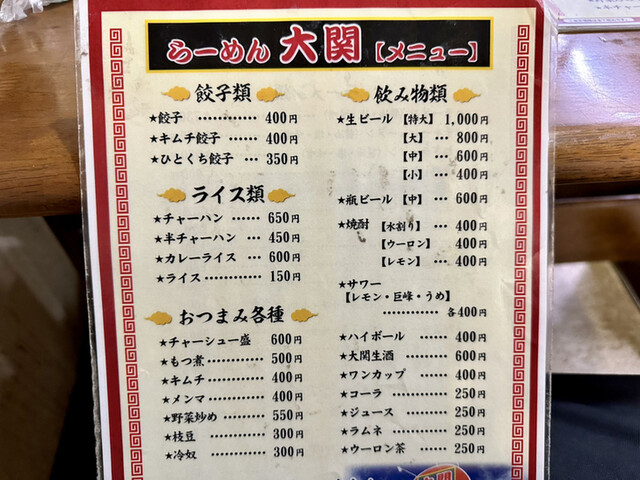 らーめん 大関【メニュー】
餃子類
★餃子 ………… 400円
★キムチ餃子 …… 400円
★ひとくち餃子 … 350円
ライス類
★チャーハン …… 650円
★半チャーハン … 450円
★カレーライス … 600円
★ライス ………… 150円
おつまみ各種
★チャーシュー盛 600円
★もつ煮 ………… 500円
★キムチ ………… 400円
★メンマ ………… 400円
★野菜炒め ……… 550円
★枝豆 …………… 300円
★冷奴 …………… 300円
飲み物類
★生ビール【特大】1,000円
【大】… 800円
【中】… 600円
【小】… 400円
★瓶ビール【中】… 600円
★焼酎【水割り】… 400円
【ウーロン】 400円
【レモン】… 400円
★サワー
【レモン・巨峰・うめ】
………… 各400円
★ハイボール …… 400円
★大関生酒 ……… 600円
★ワンカップ …… 400円
★コーラ ………… 250円
★ジュース ……… 250円
★ラムネ ………… 250円
★ウーロン茶 …… 250円